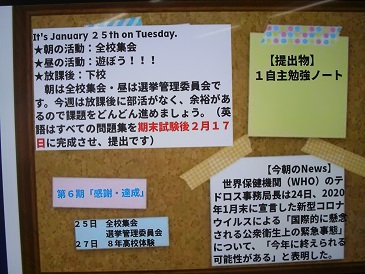 It's January 25th on Tuesday.
★朝の活動：全校集会
★昼の活動：遊ぼう！！！
★放課後：下校
　朝は全校集会・昼は選挙管理委員会で
す。今週は放課後に部活がなく、余裕があ
るので課題をどんどん進めましょう。（英
語はすべての問題集を期末試験後２月１７
日に完成させ、提出です）
【提出物】
１自主勉強ノート
第６期「感謝・達成」
２５日　全校集会
選挙管理委員会
２７日　８年高校体験
【今朝のNews】
　世界保健機関（WHO）のテ
ドロス事務局長は24日、2020
年1月末に宣言した新型コロナ
ウイルスによる「国際的に懸念
される公衆衛生上の緊急事態」
について、「今年に終えられる
可能性がある」と表明した。